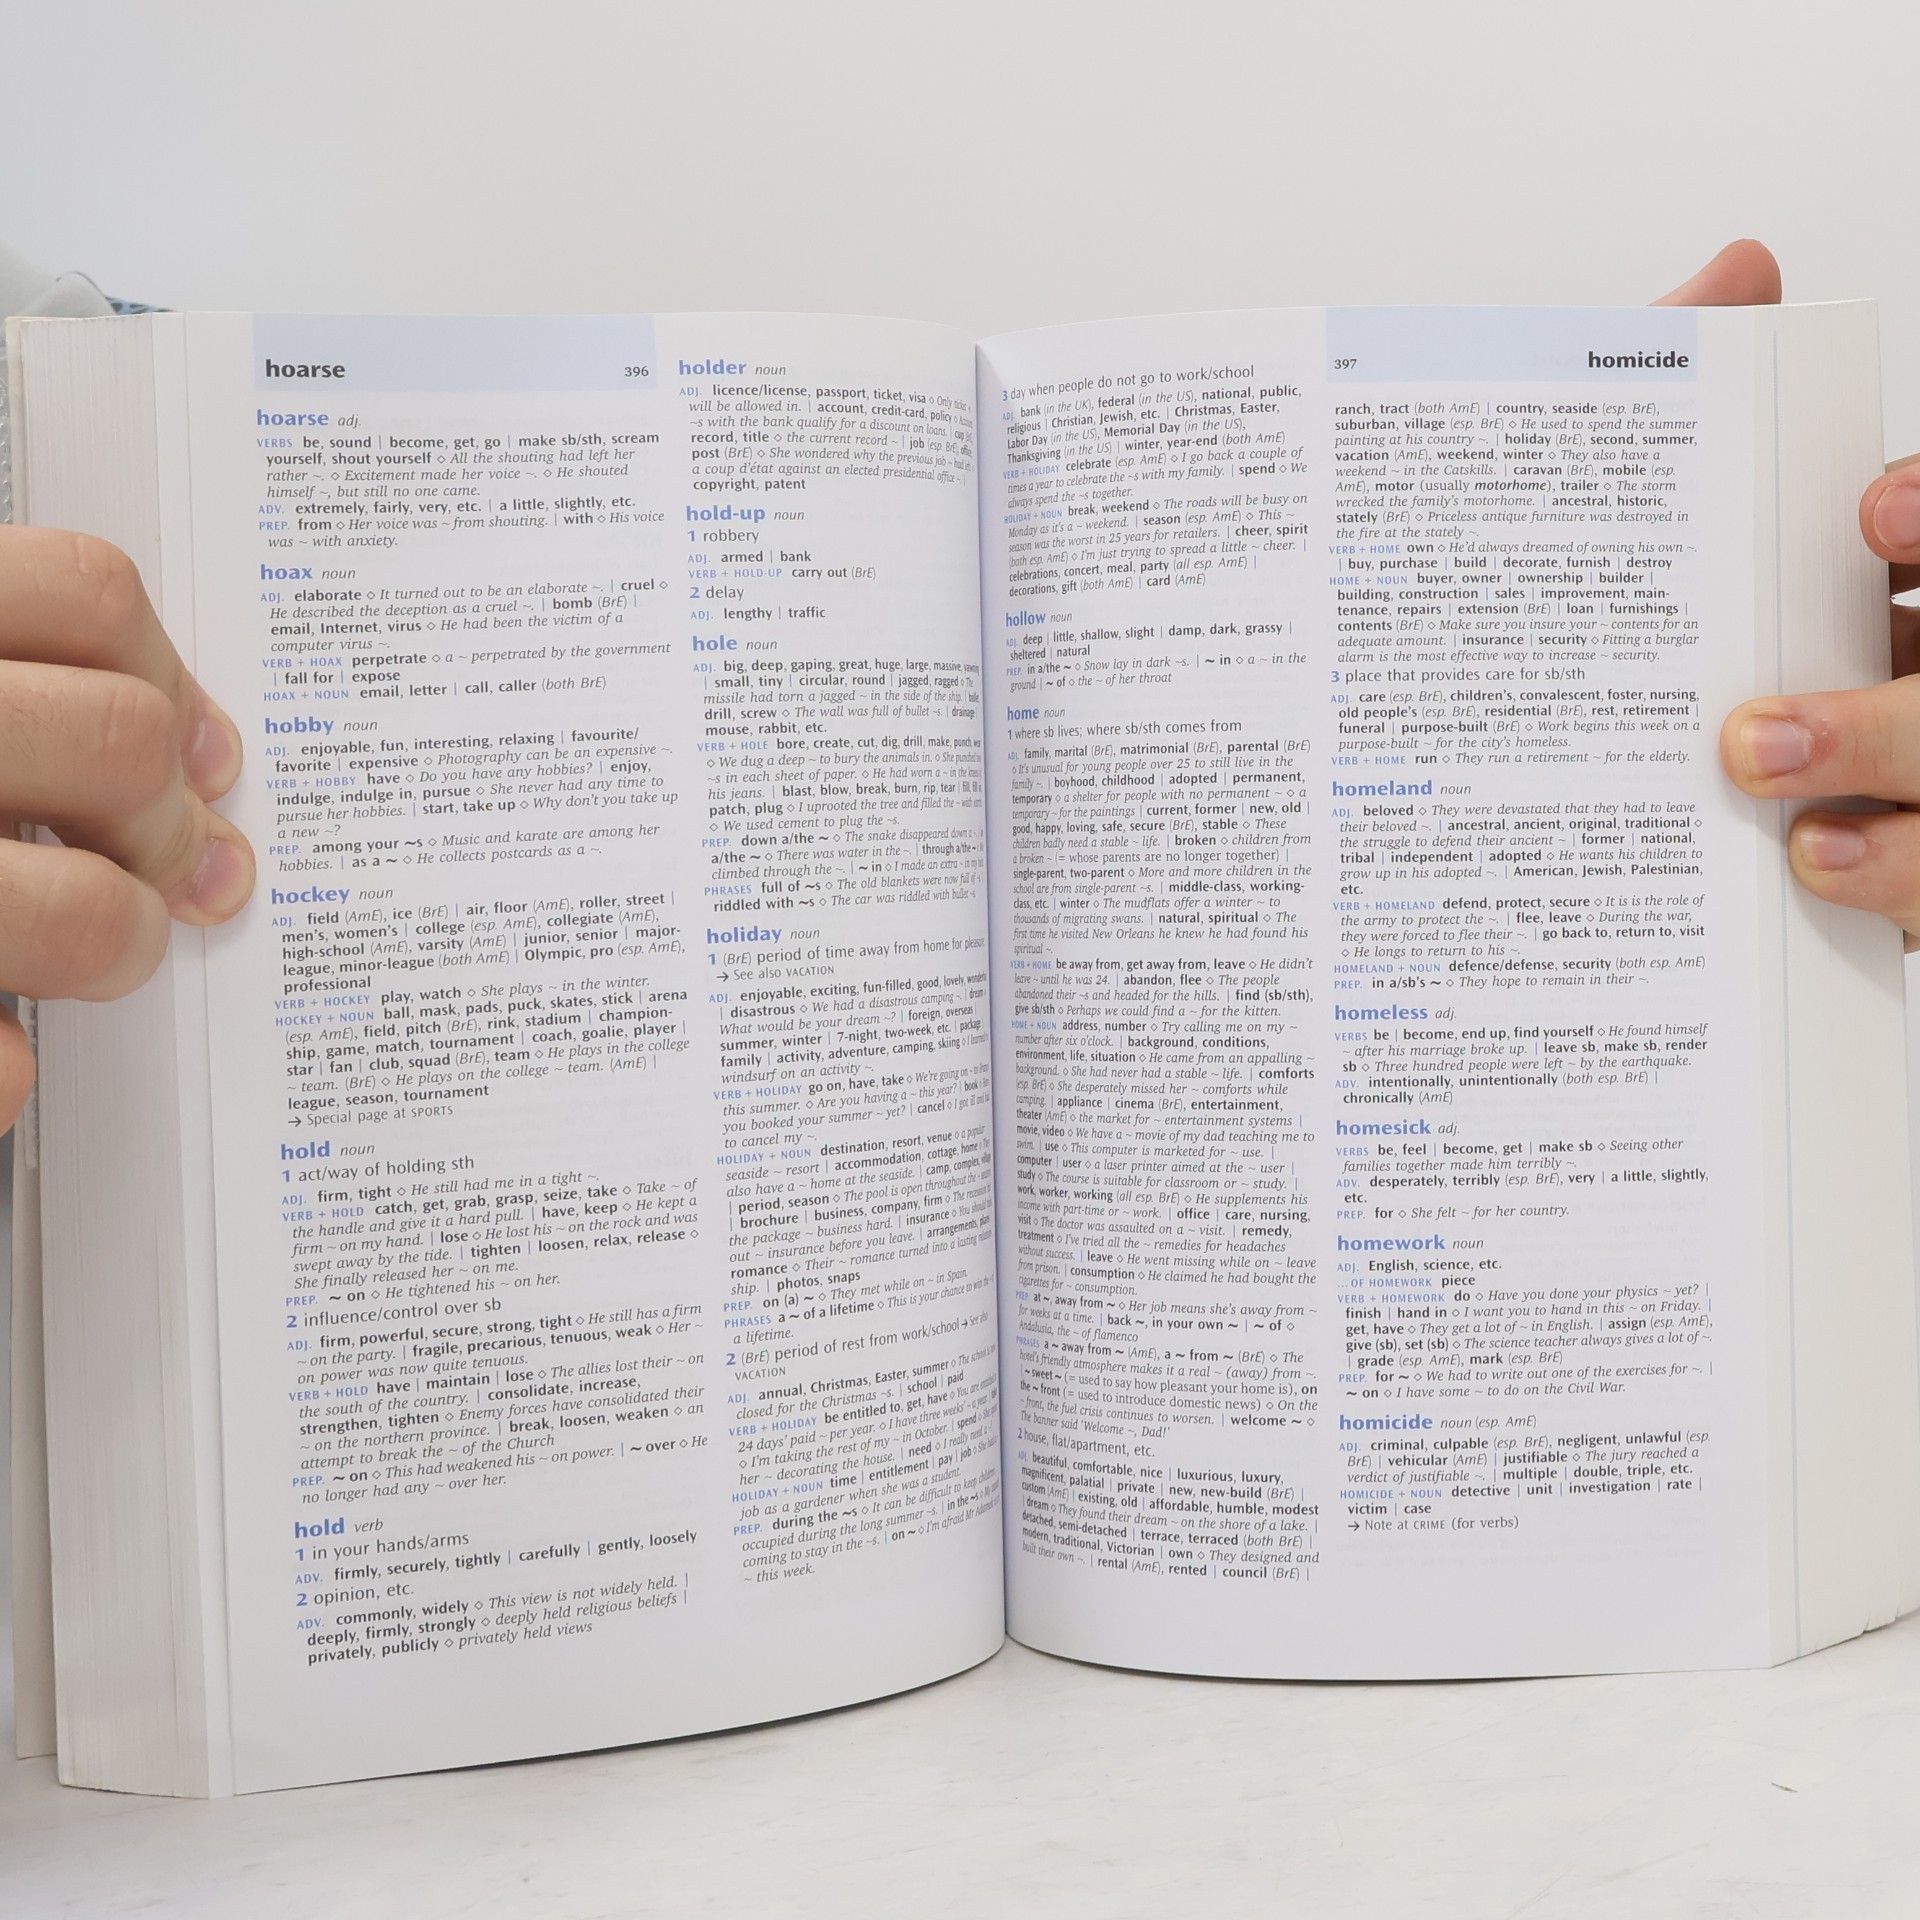 hoarse 396
hoarse adj.
VERBS be, sound | become, get, go | make sb/sth, scream
yourself, shout yourself ◇ All the shouting had left her
rather ~. ◇ Excitement made her voice ~. ◇ He shouted
himself ~, but still no one came.
ADV. extremely, fairly, very, etc. | a little, slightly, etc.
PREP. from ◇ Her voice was ~ from shouting. | with ◇ His voice
was ~ with anxiety.
hoax noun
ADJ. elaborate ◇ It turned out to be an elaborate ~. | cruel ◇
He described the deception as a cruel ~. | bomb (BrE) |
email, Internet, virus ◇ He had been the victim of a
computer virus ~.
VERB + HOAX perpetrate ◇ a ~ perpetrated by the government
| fall for | expose
HOAX + NOUN email, letter | call, caller (both BrE)
hobby noun
ADJ. enjoyable, fun, interesting, relaxing | favourite/
favorite | expensive ◇ Photography can be an expensive ~.
VERB + HOBBY have ◇ Do you have any hobbies? | enjoy,
indulge, indulge in, pursue ◇ She never had any time to
pursue her hobbies. | start, take up ◇ Why don't you take up
a new ~?
PREP. among your ~s ◇ Music and karate are among her
hobbies. | as a ~ ◇ He collects postcards as a ~.
hockey noun
ADJ. field (AmE), ice (BrE) | air, floor (AmE), roller, street |
men's, women's | college (esp. AmE), collegiate (AmE),
high-school (AmE), varsity (AmE) | junior, senior | major-
league, minor-league (both AmE) | Olympic, pro (esp. AmE),
professional
VERB + HOCKEY play, watch ◇ She plays ~ in the winter.
HOCKEY + NOUN ball, mask, pads, puck, skates, stick | arena
(esp. AmE), field, pitch (BrE), rink, stadium | champion-
ship, game, match, tournament | coach, goalie, player |
star | fan | club, squad (BrE), team ◇ He plays in the college
~ team. (BrE) ◇ He plays on the college ~ team. (AmE) |
league, season, tournament
→ Special page at SPORTS
hold noun
1 act/way of holding sth
ADJ. firm, tight ◇ He still had me in a tight ~.
VERB + HOLD catch, get, grab, grasp, seize, take ◇ Take ~ of
the handle and give it a hard pull. | have, keep ◇ He kept a
firm ~ on my hand. | lose ◇ He lost his ~ on the rock and was
swept away by the tide. | tighten | loosen, relax, release ◇
She finally released her ~ on me.
PREP. ~ on ◇ He tightened his ~ on her.
2 influence/control over sb
ADJ. firm, powerful, secure, strong, tight ◇ He still has a firm
~ on the party. | fragile, precarious, tenuous, weak ◇ Her ~
on power was now quite tenuous.
VERB + HOLD have | maintain | lose ◇ The allies lost their ~ on
the south of the country. | consolidate, increase,
strengthen, tighten ◇ Enemy forces have consolidated their
~ on the northern province. | break, loosen, weaken ◇ an
attempt to break the ~ of the Church
PREP. ~ on ◇ This had weakened his ~ on power. | ~ over ◇ He
no longer had any ~ over her.
hold verb
1 in your hands/arms
ADV. firmly, securely, tightly | carefully | gently, loosely
2 opinion, etc.
ADV. commonly, widely ◇ This view is not widely held. |
deeply, firmly, strongly ◇ deeply held religious beliefs |
privately, publicly ◇ privately held views
holder noun
ADJ. licence/license, passport, ticket, visa ◇ Only ticket ~s
will be allowed in. | account, credit-card, policy ◇ Account
~s with the bank qualify for a discount on loans. | cup
record, title ◇ the current record ~ | job (esp. BrE), office,
post (BrE) ◇ She wondered why the previous job ~ had left
a coup d'état against an elected presidential office ~ |
copyright, patent
hold-up noun
1 robbery
ADJ. armed | bank
VERB + HOLD-UP carry out (BrE)
2 delay
ADJ. lengthy | traffic
hole noun
ADJ. big, deep, gaping, great, huge, large, massive, yawning
| small, tiny | circular, round | jagged, ragged ◇ The
missile had torn a jagged ~ in the side of the ship. | bullet,
drill, screw ◇ The wall was full of bullet ~s. | drainage |
mouse, rabbit, etc.
VERB + HOLE bore, create, cut, dig, drill, make, punch, wear
◇ We dug a deep ~ to bury the animals in. ◇ She punched
~s in each sheet of paper. ◇ He had worn a ~ in the knees of
his jeans. | blast, blow, break, burn, rip, tear | fill, fill in,
patch, plug ◇ I uprooted the tree and filled the ~ with
◇ We used cement to plug the ~s.
PREP. down a/the ~ ◇ The snake disappeared down a ~. | in
a/the ~ ◇ There was water in the ~. | through a/the ~ ◇
climbed through the ~. | ~ in ◇ I made an extra ~ in my
PHRASES full of ~s ◇ The old blankets were now full of ~s.
riddled with ~s ◇ The car was riddled with bullet ~s.
holiday noun
1 (BrE) period of time away from home for pleasure
→ See also VACATION
ADJ. enjoyable, exciting, fun-filled, good, lovely, wonderful
| disastrous ◇ We had a disastrous camping ~. | dream ◇
What would be your dream ~? | foreign, overseas |
summer, winter | 7-night, two-week, etc. | package |
family | activity, adventure, camping, skiing ◇ I learned to
windsurf on an activity ~.
VERB + HOLIDAY go on, have, take ◇ We're going on ~ to
this summer. ◇ Are you having a ~ this year? | book ◇
you booked your summer ~ yet? | cancel ◇ I got ill and had
to cancel my ~.
HOLIDAY + NOUN destination, resort, venue ◇ a popular
seaside ~ resort | accommodation, cottage, home ◇ They
also have a ~ home at the seaside. | camp, complex, village
| period, season ◇ The pool is open throughout the ~ season.
| brochure | business, company, firm ◇ The recession
the package ~ business hard. | insurance ◇ You should
out ~ insurance before you leave. | arrangements, plans
romance ◇ Their ~ romance turned into a lasting
ship. | photos, snaps
PREP. on (a) ~ ◇ They met while on ~ in Spain.
PHRASES a ~ of a lifetime ◇ This is your chance to win the ~ of
a lifetime.
2 (BrE) period of rest from work/school → See also
VACATION
ADJ. annual, Christmas, Easter, summer ◇ The school is
closed for the Christmas ~s. | school | paid
VERB + HOLIDAY be entitled to, get, have ◇ You are entitled to
24 days' paid ~ per year. ◇ I have three weeks' ~ a year. | take
◇ I'm taking the rest of my ~ in October. | spend ◇ She spent
her ~ decorating the house. | need ◇ I really need a ~!
HOLIDAY + NOUN time | entitlement | pay | job ◇ She had a ~
job as a gardener when she was a student.
PREP. during the ~s ◇ It can be difficult to keep children
occupied during the long summer ~s. | in the ~s ◇
coming to stay in the ~s. | on ~ ◇ I'm afraid Mr Adams is on
~ this week.
3 day when people do not go to work/school
ADJ. bank (in the UK), federal (in the US), national, public,
religious | Christian, Jewish, etc. | Christmas, Easter,
Labor Day (in the US), Memorial Day (in the US),
Thanksgiving (in the US) | winter, year-end (both AmE)
VERB + HOLIDAY celebrate (esp. AmE) ◇ I go back a couple of
times a year to celebrate the ~s with my family. | spend ◇ We
always spend the ~s together.
HOLIDAY + NOUN break, weekend ◇ The roads will be busy on
Monday as it's a ~ weekend. | season (esp. AmE) ◇ This ~
season was the worst in 25 years for retailers. | cheer, spirit
(both esp. AmE) ◇ I'm just trying to spread a little ~ cheer. |
celebrations, concert, meal, party (all esp. AmE) |
decorations, gift (both AmE) | card (AmE)
hollow noun
ADJ. deep | little, shallow, slight | damp, dark, grassy |
sheltered | natural
PREP. in a/the ~ ◇ Snow lay in dark ~s. | ~ in ◇ a ~ in the
ground | ~ of ◇ the ~ of her throat
home noun
1 where sb lives; where sb/sth comes from
ADJ. family, marital (BrE), matrimonial (BrE), parental (BrE)
◇ It's unusual for young people over 25 to still live in the
family ~. | boyhood, childhood | adopted | permanent,
temporary ◇ a shelter for people with no permanent ~ ◇ a
temporary ~ for the paintings | current, former | new, old |
good, happy, loving, safe, secure (BrE), stable ◇ These
children badly need a stable ~ life. | broken ◇ children from
a broken ~ (= whose parents are no longer together) |
single-parent, two-parent ◇ More and more children in the
school are from single-parent ~s. | middle-class, working-
class, etc. | winter ◇ The mudflats offer a winter ~ to
thousands of migrating swans. | natural, spiritual ◇ The
first time he visited New Orleans he knew he had found his
spiritual ~.
VERB + HOME be away from, get away from, leave ◇ He didn't
leave ~ until he was 24. | abandon, flee ◇ The people
abandoned their ~s and headed for the hills. | find (sb/sth),
give sb/sth ◇ Perhaps we could find a ~ for the kitten.
HOME + NOUN address, number ◇ Try calling me on my ~
number after six o'clock. | background, conditions,
environment, life, situation ◇ He came from an appalling ~
background. ◇ She had never had a stable ~ life. | comforts
(esp. BrE) ◇ She desperately missed her ~ comforts while
camping. | appliance | cinema (BrE), entertainment,
theater (AmE) ◇ the market for ~ entertainment systems |
movie, video ◇ We have a ~ movie of my dad teaching me to
swim. | use ◇ This computer is marketed for ~ use. |
computer | user ◇ a laser printer aimed at the ~ user |
study ◇ The course is suitable for classroom or ~ study. |
work, worker, working (all esp. BrE) ◇ He supplements his
income with part-time or ~ work. | office | care, nursing,
visit ◇ The doctor was assaulted on a ~ visit. | remedy,
treatment ◇ I've tried all the ~ remedies for headaches
without success. | leave ◇ He went missing while on ~ leave
from prison. | consumption ◇ He claimed he had bought the
cigarettes for ~ consumption.
PREP. at ~, away from ~ ◇ Her job means she's away from ~
for weeks at a time. | back ~, in your own ~ | ~ of ◇
Andalusia, the ~ of flamenco
PHRASES a ~ away from ~ (AmE), a ~ from ~ (BrE) ◇ The
hotel's friendly atmosphere makes it a real ~ (away) from ~.
| ~ sweet ~ (= used to say how pleasant your home is), on
the ~ front (= used to introduce domestic news) ◇ On the
~ front, the fuel crisis continues to worsen. | welcome ~ ◇
The banner said 'Welcome ~, Dad!'
2 house, flat/apartment, etc.
ADJ. beautiful, comfortable, nice | luxurious, luxury,
magnificent, palatial | private | new, new-build (BrE) |
custom (AmE) | existing, old | affordable, humble, modest
| dream ◇ They found their dream ~ on the shore of a lake. |
detached, semi-detached | terrace, terraced (both BrE) |
modern, traditional, Victorian | own ◇ They designed and
built their own ~. | rental (AmE), rented | council (BrE) |
397 homicide
ranch, tract (both AmE) | country, seaside (esp. BrE),
suburban, village (esp. BrE) ◇ He used to spend the summer
painting at his country ~. | holiday (BrE), second, summer,
vacation (AmE), weekend, winter ◇ They also have a
weekend ~ in the Catskills. | caravan (BrE), mobile (esp.
AmE), motor (usually motorhome), trailer ◇ The storm
wrecked the family's motorhome. | ancestral, historic,
stately (BrE) ◇ Priceless antique furniture was destroyed in
the fire at the stately ~.
VERB + HOME own ◇ He'd always dreamed of owning his own ~.
| buy, purchase | build | decorate, furnish | destroy
HOME + NOUN buyer, owner | ownership | builder |
building, construction | sales | improvement, main-
tenance, repairs | extension (BrE) | loan | furnishings |
contents (BrE) ◇ Make sure you insure your ~ contents for an
adequate amount. | insurance | security ◇ Fitting a burglar
alarm is the most effective way to increase ~ security.
3 place that provides care for sb/sth
ADJ. care (esp. BrE), children's, convalescent, foster, nursing,
old people's (esp. BrE), residential (BrE), rest, retirement |
funeral | purpose-built (BrE) ◇ Work begins this week on a
purpose-built ~ for the city's homeless.
VERB + HOME run ◇ They run a retirement ~ for the elderly.
homeland noun
ADJ. beloved ◇ They were devastated that they had to leave
their beloved ~. | ancestral, ancient, original, traditional ◇
the struggle to defend their ancient ~ | former | national,
tribal | independent | adopted ◇ He wants his children to
grow up in his adopted ~. | American, Jewish, Palestinian,
etc.
VERB + HOMELAND defend, protect, secure ◇ It is is the role of
the army to protect the ~. | flee, leave ◇ During the war,
they were forced to flee their ~. | go back to, return to, visit
◇ He longs to return to his ~.
HOMELAND + NOUN defence/defense, security (both esp. AmE)
PREP. in a/sb's ~ ◇ They hope to remain in their ~.
homeless adj.
VERBS be | become, end up, find yourself ◇ He found himself
~ after his marriage broke up. | leave sb, make sb, render
sb ◇ Three hundred people were left ~ by the earthquake.
ADV. intentionally, unintentionally (both esp. BrE) |
chronically (AmE)
homesick adj.
VERBS be, feel | become, get | make sb ◇ Seeing other
families together made him terribly ~.
ADV. desperately, terribly (esp. BrE), very | a little, slightly,
etc.
PREP. for ◇ She felt ~ for her country.
homework noun
ADJ. English, science, etc.
... OF HOMEWORK piece
VERB + HOMEWORK do ◇ Have you done your physics ~ yet? |
finish | hand in ◇ I want you to hand in this ~ on Friday. |
get, have ◇ They get a lot of ~ in English. | assign (esp. AmE),
give (sb), set (sb) ◇ The science teacher always gives a lot of ~.
| grade (esp. AmE), mark (esp. BrE)
PREP. for ~ ◇ We had to write out one of the exercises for ~. |
~ on ◇ I have some ~ to do on the Civil War.
homicide noun (esp. AmE)
ADJ. criminal, culpable (esp. BrE), negligent, unlawful (esp.
BrE) | vehicular (AmE) | justifiable ◇ The jury reached a
verdict of justifiable ~. | multiple | double, triple, etc.
HOMICIDE + NOUN detective | unit | investigation | rate |
victim | case
→ Note at CRIME (for verbs)